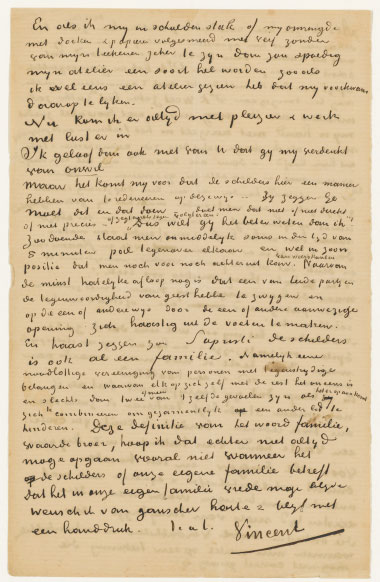 En als ik my in schulden steek of my omringde
met doeken & papieren volgesmeerd met verf zonder
van myn teekenen zeker te zyn dan zou spoedig
myn atelier een soort hel worden zooals
ik wel eens een atelier gezien heb dat my voorkwam
daarop te lyken.
Nu kom ik er altyd met pleizier & werk
met lust er in
Ik geloof dan ook niet van U dat gy my verdenkt
van onwil
maar het komt my voor dat de schilders hier een manier
hebben van redeneeren op deze wys. Zy zeggen ge
moet dit en dat doen doet men dat niet of niet direkt
of niet precies of zegt men er iets tegen volgt er an
Dus wilt gy het beter weten dan ik
Zoodoende staat men onmiddelyk soms in den tyd van
5 minuten fel tegenover elkaar en wel in zoon
positie dat men noch voor noch achteruit kan. Waarvan
de minst hatelyke afloop nog is dat een van beide partyen
de tegenwoordigheid van geest hebbe te zwygen en
op de een of andere wys door de een of andere aanwezige
opening zich haastig uit de voeten te maken.
En haast zeggen zou Sapristi de schilders
is ook al een familie. Namelyk eene
noodlottige vereeniging van personen met tegenstrydige
belangen en waarvan elk op zichzelf met de rest het oneens is
en slechts dan twee of meer 't zelfde gevoelen zyn als
zich combineeren om gezamentlyk een ander lid te
hinderen. Deze definitie van het woord familie,
waarde broer, hoop ik dat echter niet altyd
moge opgaan vooral niet wanneer het
de schilders of onze eigene familie betreft
dat het in onze eigen familie vrede moge blyven
wensch ik van ganscher harte & blyf met
een handdruk t. à t. Vincent